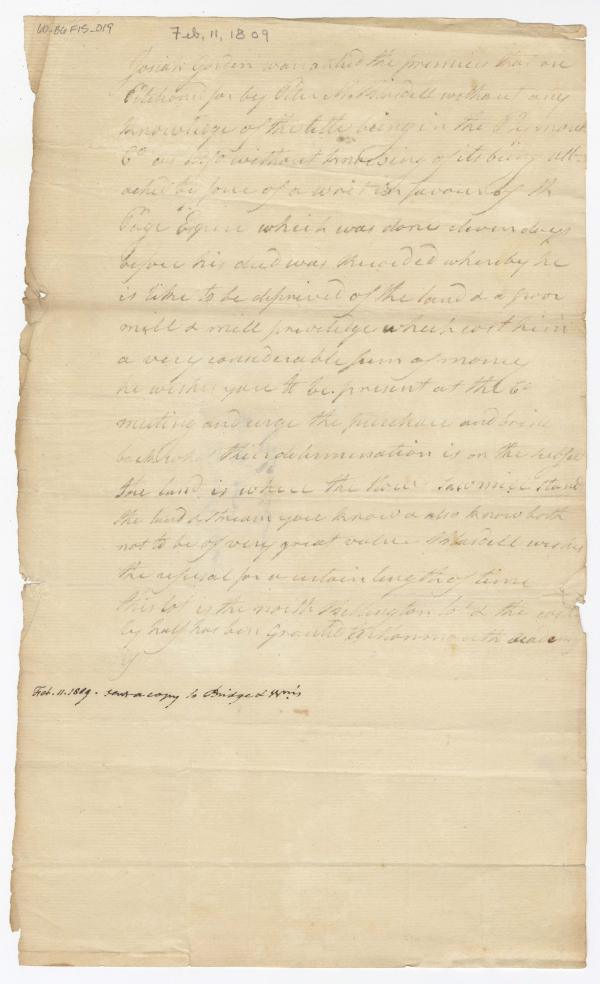 60-B6F15_019
Feb, 11, 1809
Josiah Gorden warranted the premises that are
Petitioned for by Peter without any
knowledge of the title being in the Plymouth
Co or without knowing of its being att-
ached by force of a writ in favour of
Page Esquire which was done eleven days
before his deed was recorded whereby he
is like to be deprived of the land & a
mill & mill priviledge which cost him
a very considerable sum of money
he wishes you to be present at the Co
meeting and urge the purchase and bring
back what their determination is on the
the land is where the saw mill stand
the land & stream you know & also know both
not to be of very great value wishes
the refusal for a certain length of time
this lot is the north lot & the
ly half has ben granted to Monmouth
Feb. 11. 1809. sent a copy to Bridge &